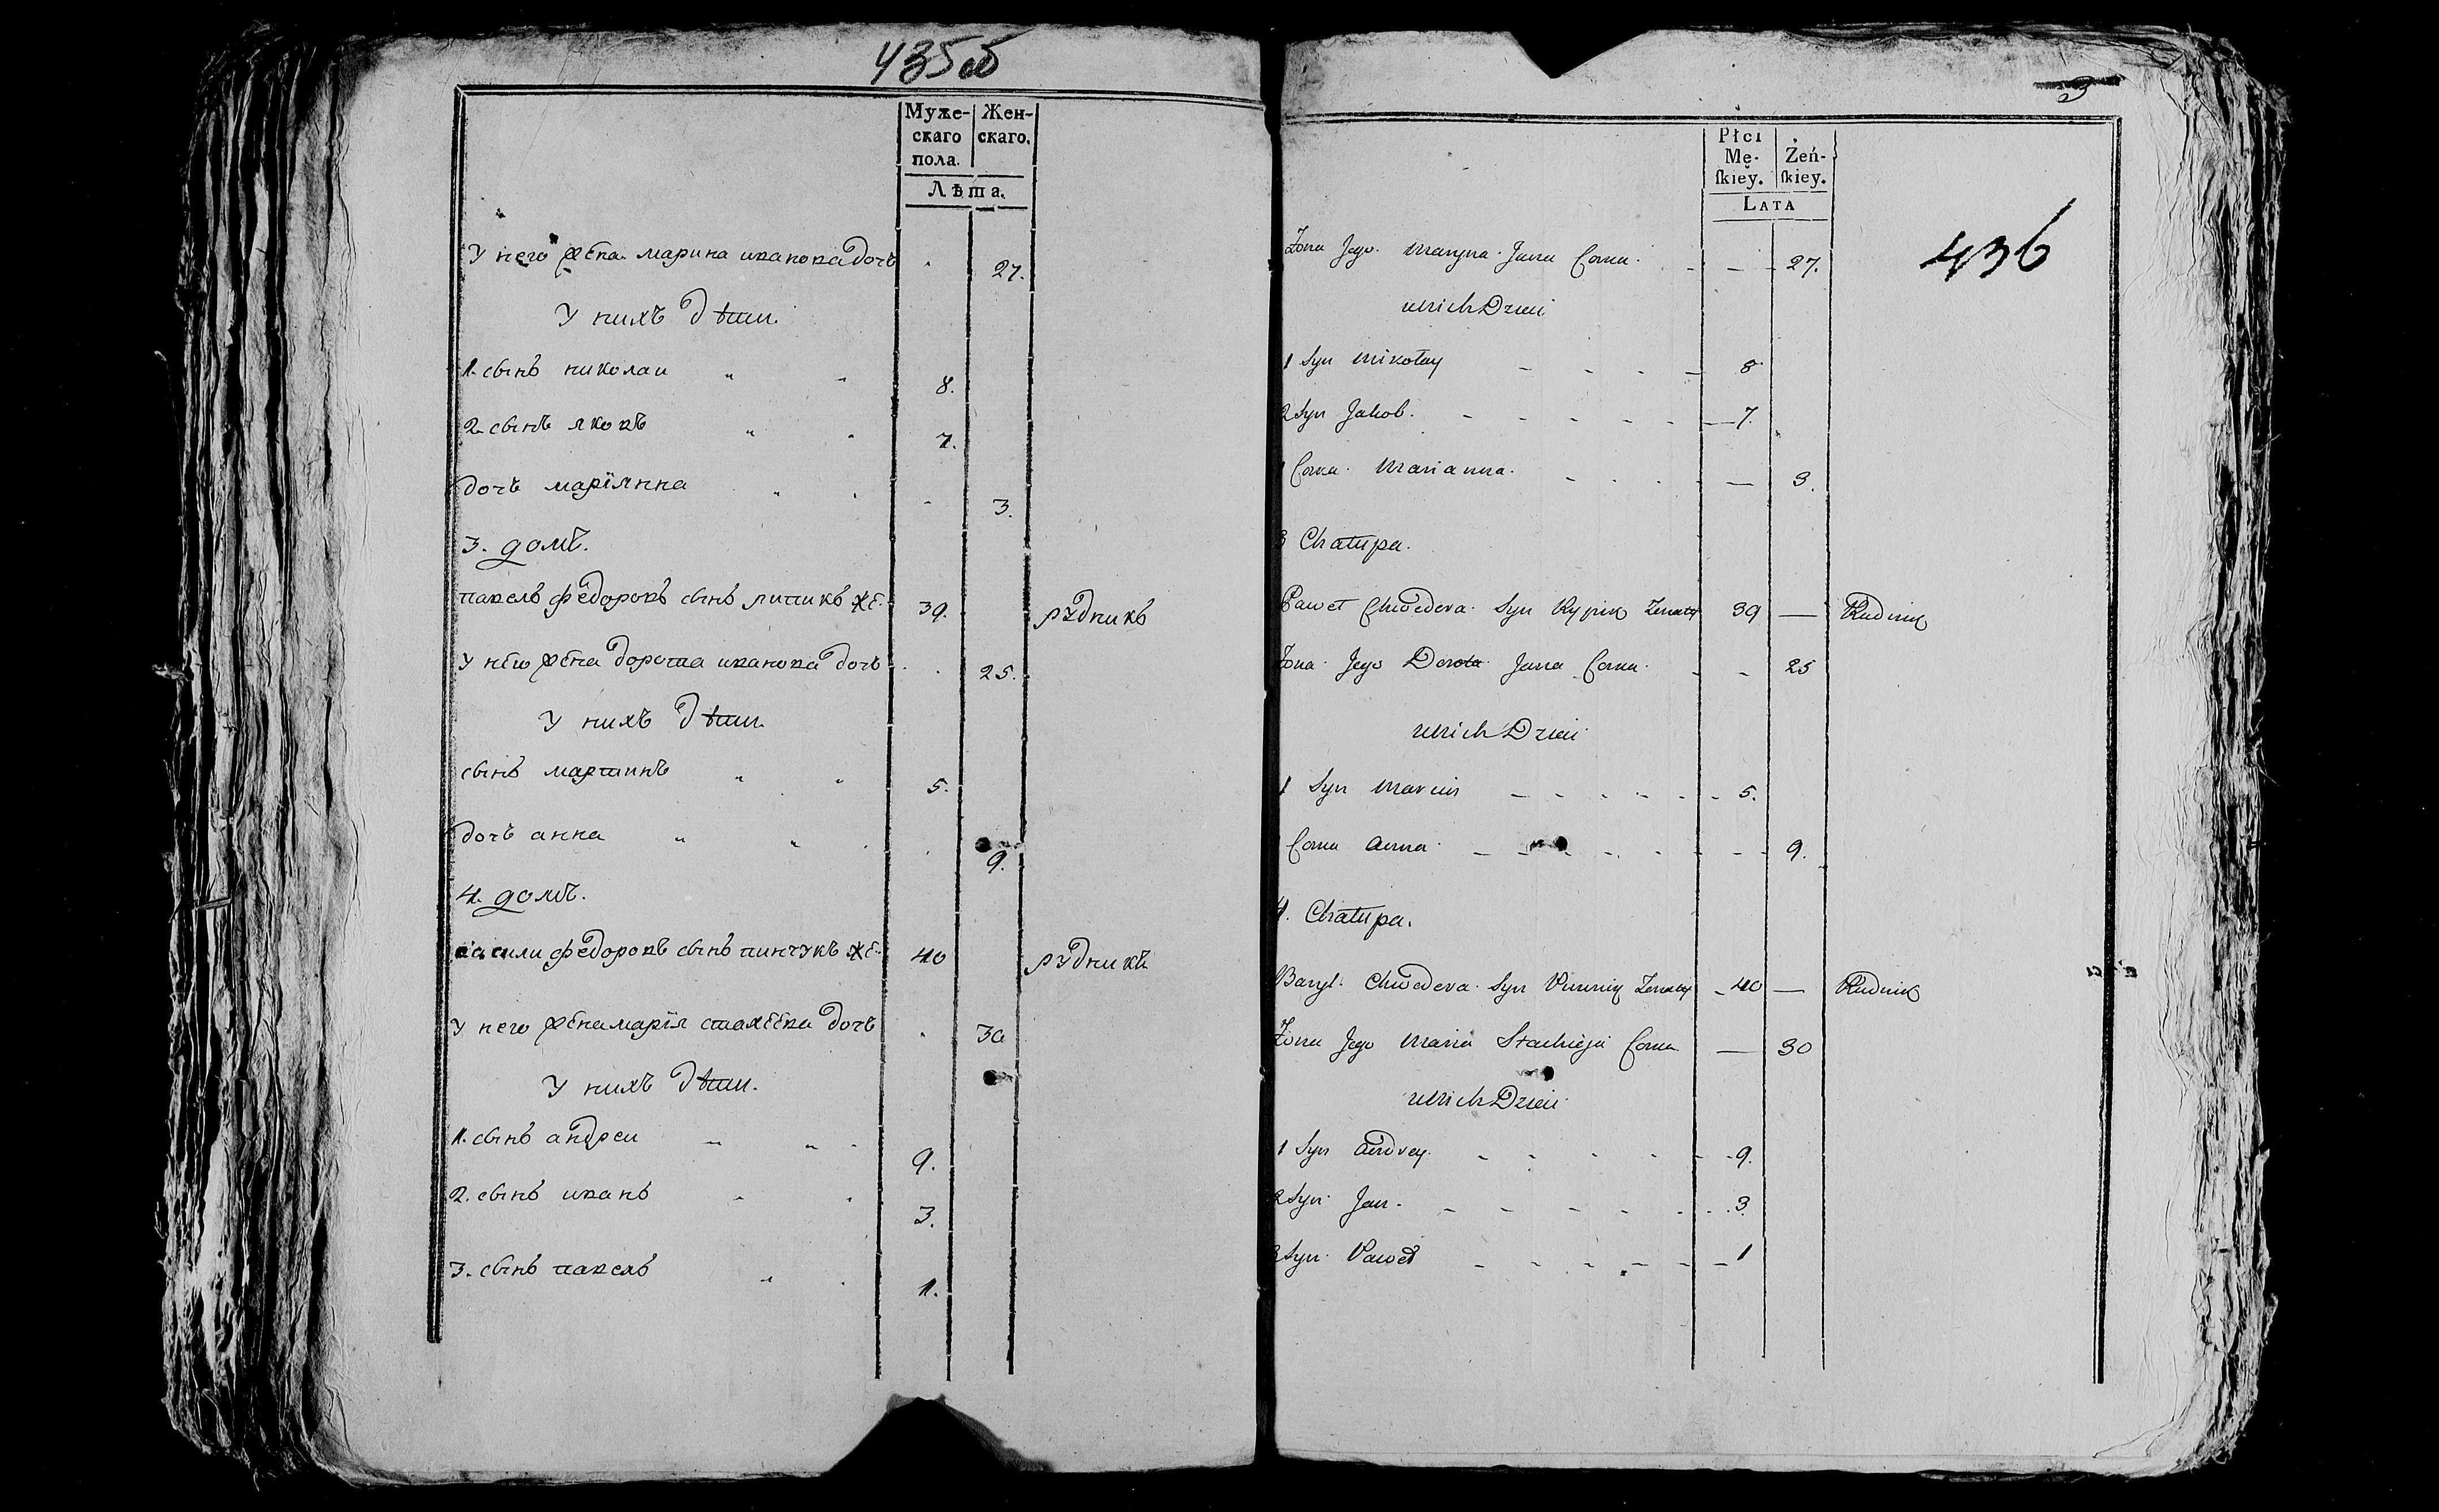 435 об
Муже-
скаго
пола.
Жен-
скаго.
Лѣта.
У него жена марина иванова дочь 27.
У нихъ дѣти.
1. сынъ николаи 8.
2. сынъ яковъ 7.
дочь маріянна 3.
3. домъ.
павелъ федоровъ сынъ же. 39. рудникъ
У него жена дорота иванова дочь 25.
У нихъ дѣти.
сынъ мартинъ 5.
дочь анна 9.
4. домъ.
васили федоровъ сынъ пинчукъ же. 40 рудникъ
У него жена марія стахеева дочь 30
У нихъ дѣти.
1. сынъ андреи 9.
2. сынъ иванъ 3.
3. сынъ павелъ 1.
3
Płci
Mę-
ſkiey.
Żeń-
ſkiey.
LATA
436
Żona Jego Maryna Jana Corka 27.
u nich Dzieci
1 Syn Mikołay 8
2 Syn Jakob. 7.
1 Corka Marianna. 3.
3 Chałupa.
Paweł Chwedera Syn Żonaty 39 Rudnik
Żona Jego Dorota Jana Corka 25
u nich Dzieci
1 Syn Marcin 5.
Corka Anna 9.
4. Chałupa.
Bazyl. Chwedera Syn Żonaty 40 Rudnik
Żona Jego Maria Stachieja Corka 30
u nich Dzieci
1 Syn Andrey. 9.
2 Syn Jan. 3.
3 Syn Paweł 1